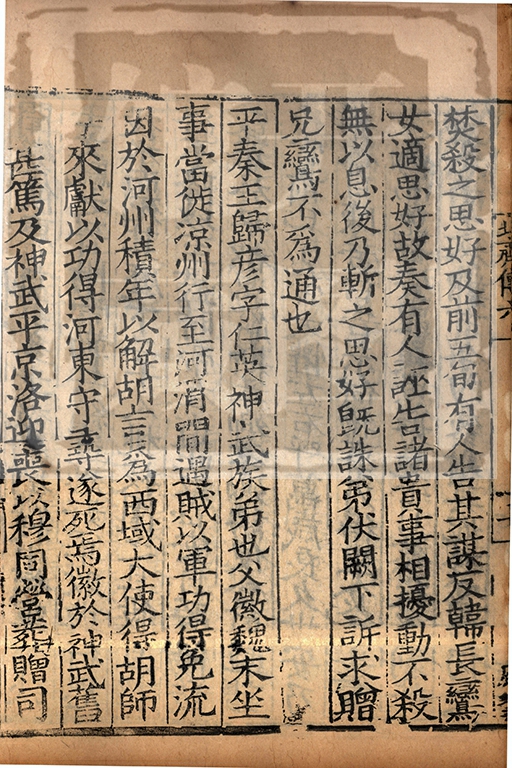 焚殺之思好及前五旬有人告其謀反韓長鸞
女適思好故奏有人誣告諸貴事相擾動不殺
無以息後乃斬之思好既誅弟伏闕下訴求贈
兄鸞不為通也
平秦王歸彦字仁英神武族弟也父徽魏末坐
事當徙涼州行至河渭間遇賊以軍功得免流
因於河州積年以解胡言為西域大使得胡師
子來獻以功得河東守尋遂死焉徽於神武舊
甚篤及神武平京洛迎喪以穆同營葬贈司